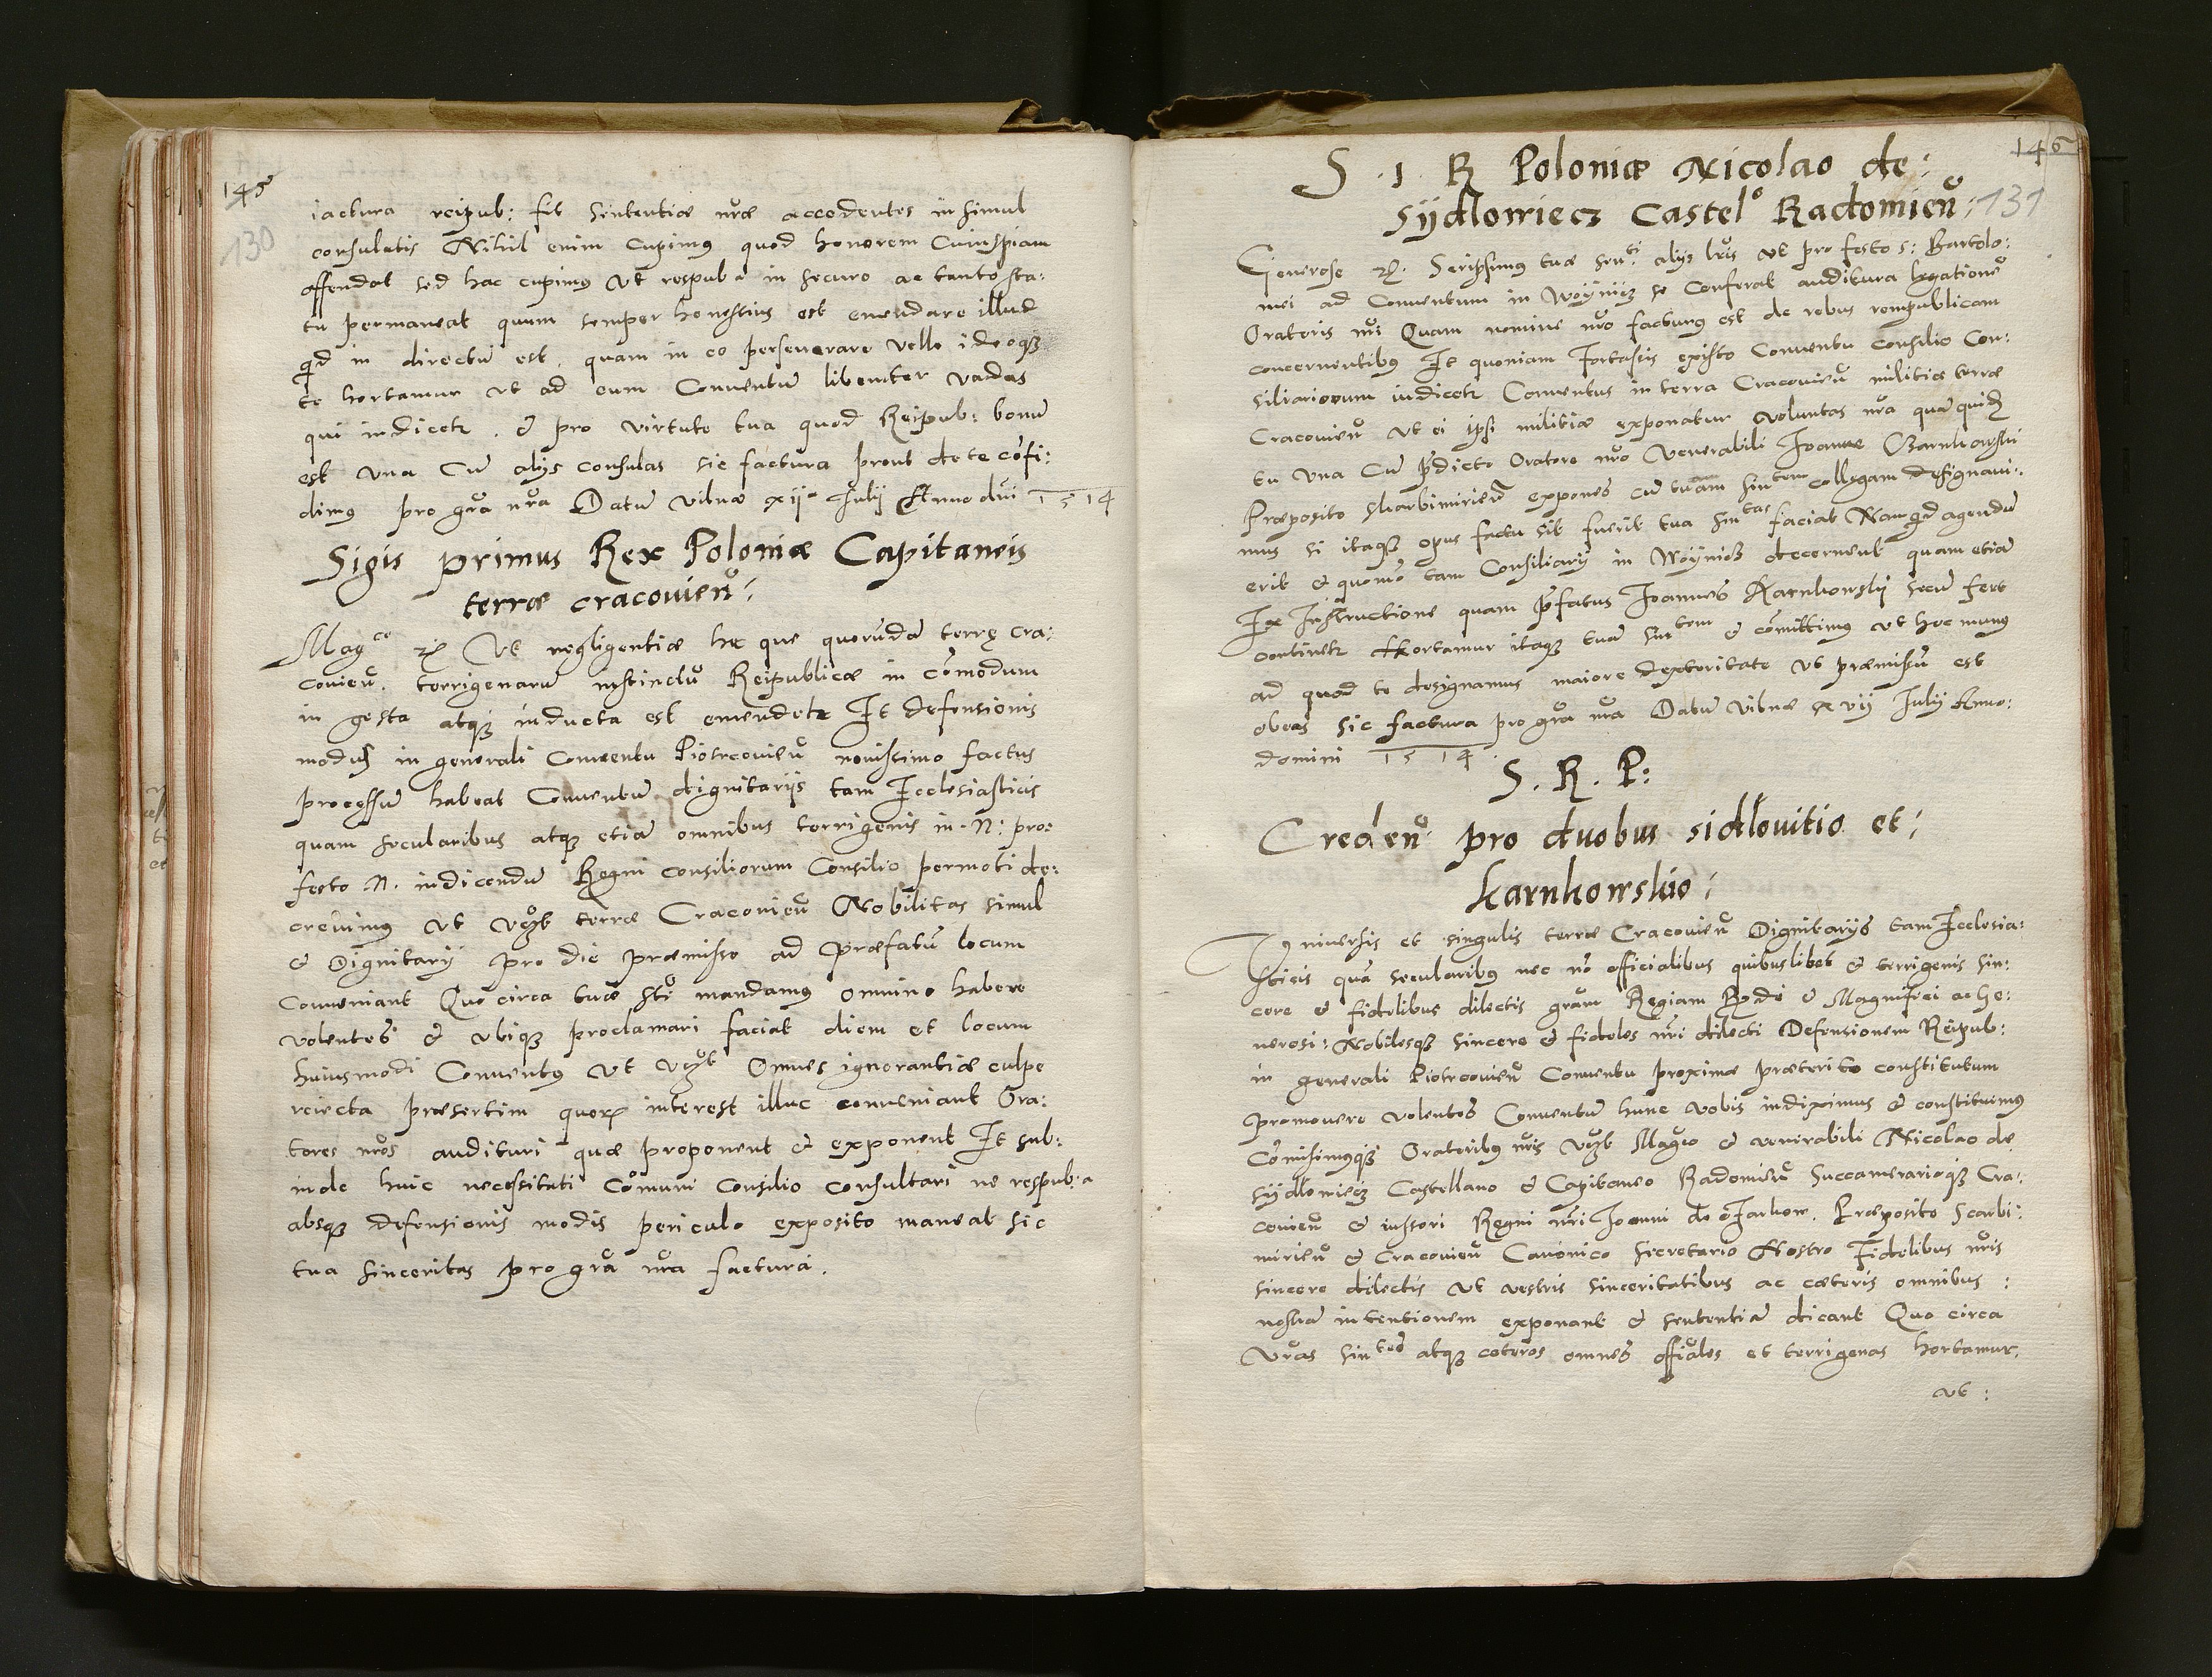 145
130
iactura reipub: fit sententiæ nr̃æ accedentes in simul
consulatis Nihil enim cupimus quod honorem cuiuspiam
offendat sed hac cupimus ut respub a in securo ac tanto sta:
tu permaneat quum semper honestius est emendare illud
qd in directũ est quam in eo perseverare velle ideoqȝ
te hortamur ut ad eum Conventũ libenter vadas
qui indicetr. & pro virtute tua quod Reipub: bonũ
est una Cũ alijs consulas sic factura prout de te cõfi:
dimus pro grã nrã Datũ vilnæ xij a Julij Anno dñi 1514
Sigis primus Rex Poloniæ Capitaneis
terræ cracovieñ:
Mag co ꝛc Ut negligentiæ hec que quorũdã terrę cra:
covieñ. terrigenarũ instinctu Reipublicæ in cõmodum
in gesta atqȝ inducta est emendetr Et defensionis
modus in generali Conventu Piotrcovieñ novissimo factus
processũ habeat Conventũ dignitarijs tam Ecclesiasticis
quam secularibus atqȝ etiã omnibus terrigenis in .N: pro:
festo N. indicendũ Regni consiliorum Consilio permoti de:
crevimus ut vȝt terræ Cracovieñ Nobilitas simul
& Dignitarij pro die præmisso ad præfatũ locum
Conveniant Quo circa tuæ sti mandamus omnino habere
volentes & ubiqȝ proclamari faciat diem et locum
huiusmodi Conventus ut vȝt Omnes ignorantiæ culpe
reiecta præsertim quoꝝ interest illuc conveniant Ora:
tores nr̃os audituri quæ proponent & exponent Et sub:
inde huic necessitati Cõmuni Consilio consultari ne respub: a
absqȝ defensionis modis periculo exposito maneat sic
tua sinceritas pro grã nrã factura.
146
131
S. 1 R Poloniæ Nicolao de:
Sÿdlowiecz Castel o Radomieñ:
Generose ꝛc. Scripsimus tuæ sin ti alijs lr̃is ut pro festo s: Bartolo:
mei ad Conventum in Woÿnicz se conferat auditura legationẽ
Oratoris nr̃i Quam nomine nr̃o facturus est de rebus rempublicam
concernentibus Et quoniam Fortassis ex isto Conventu Consilio Con:
siliariorum indicetr Conventus in terra Cracovieñ militiæ terræ
Cracovieñ ut ei ipsi militiæ exponatur voluntas nr̃a quã quidẽ
tu una Cũ p̃dicto Oratore nr̃o Venerabili Joanne Karnkowski
Præposito Skarbimirieñ expones cũ tuam sin tem collegam designavi:
mus si itaqȝ opus factu sit fuerit tua sin tas faciat Nam qd agendũ
erit & quomõ tam Consiliarij in Woÿnicz decernent quam etiã
Ex Instructione quam p̃fatus Joannes Karnkowskij secũ fert
continetr Hortamur itaqȝ tuã sin tem & cõmittimus ut hoc munus
ad quod te designamus maiore dexteritate ut præmissũ est
obeas sic factura pro grã nrã Datũ vilnæ xvij Julij Anno:
domini 1514.
S. R. P:
Credeñ pro duobus sidlovitio et:
karnkowskio:
Universis et singulis terræ Cracovieñ Dignitarijs tam Ecclesia:
sticis quã secularibus nec nõ officialibus quibuslibet & terrigenis sin:
cere & fidelibus dilectis gram Regiam Rẽdi & Magnifici ac Ge:
nerosi: Nobilesqȝ sincere & fideles nr̃i dilecti Defensionem Reipub:
in generali Piotrcovieñ Conventu proximæ præterito constitutum
promovere volentes Conventũ hunc vobis indiximus & constituimus
Cõmisimusqȝ Oratoribus nr̃is vȝt Magco & venerabili Nicolao de
Sÿdlowiecz Castellano & Capitaneo Radomieñ Succamerarioqȝ Cra:
covieñ & iussori Regni nr̃i Joanni de Præposito Scarbi:
mirieñ & Cracovieñ Canonico Secretario Nostro Fidelibus nr̃is
sincere dilectis ut vestris sinceritatibus ac cæteris omnibus:
nostrã intentionem exponant & sententiã dicant Quo circa
vr̃as sin tes atqȝ ceteros omnes offiales et terrigenas hortamur
ut: